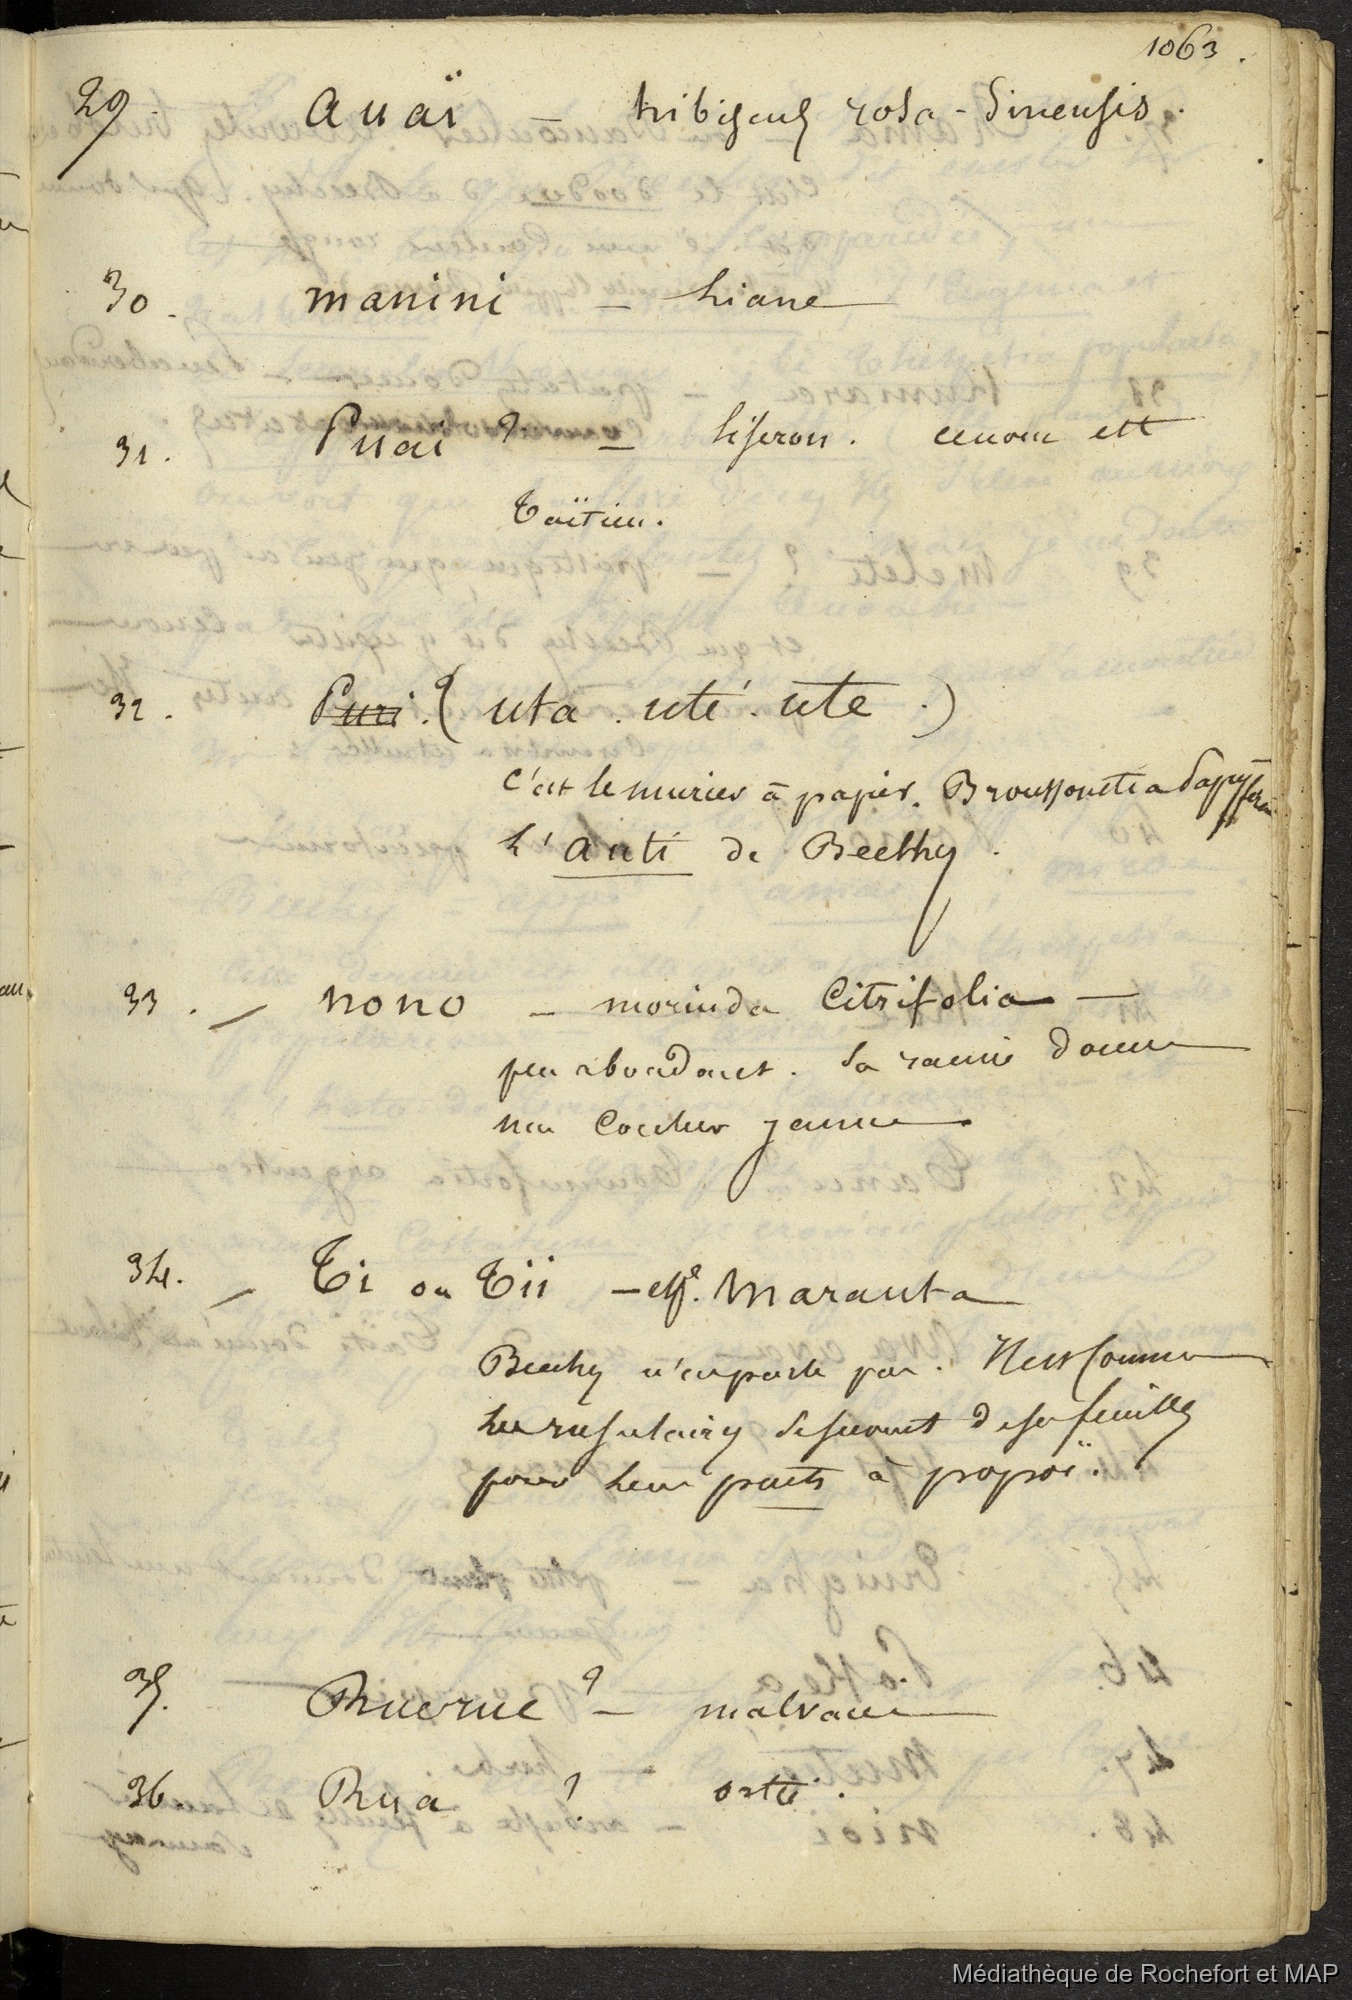 1063.
29. auaï — hibiscus rosa-Sinensis.
30. manini — Liane
31. Puai ? — liseron. ce nom est
Taïtien.
32. Puri ? (uta. uté. ute.)
c'est le murier à papier. Broussonetia Papyfera
L'auti de Beechy.
33. — nono — morinda Citrifolia —
peu abondant. Sa racine donne
une Couleur jaune
34. — Ti ou Tii — Maranta
Beechy n'en parle pas. Ness Comme
Les insulaires se servent de ses feuilles
pour leur paits à popoï.
35. Ruerue ? — malvacée
36 Rua ? ortie.
Médiathèque de Rochefort et MAP